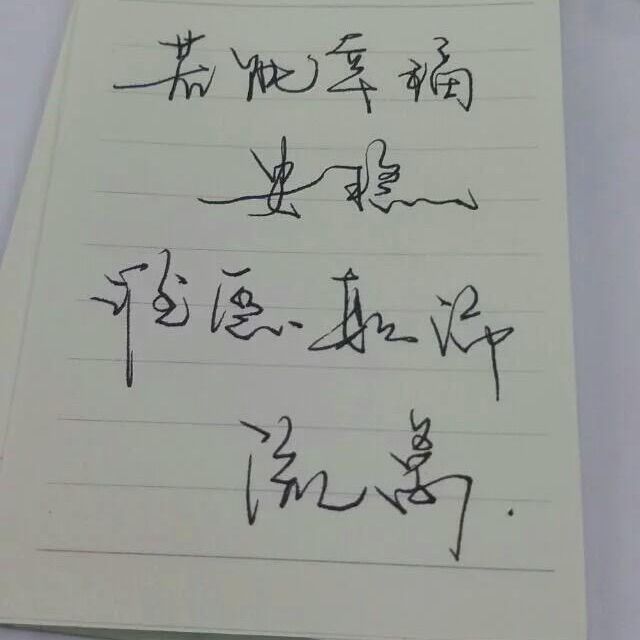 若能幸福
安稳
谁愿颠沛
流离.